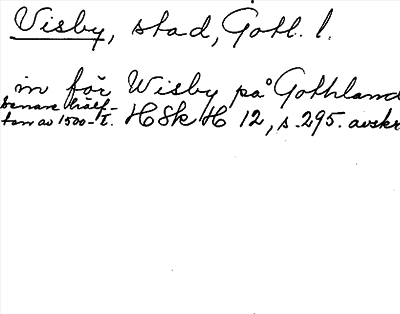 Visby, stad, Gotl. l.
in för Wisby på Gothland
senare hälf-
ten av 1500-t. HSH 12, s. 295. avskr